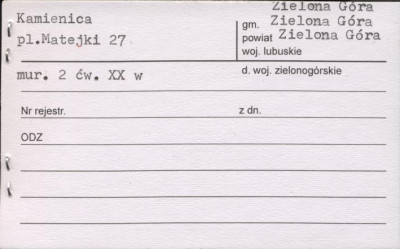 Kamienica
pl.Matejki 27
Zielona Góra
gm. Zielona Góra
powiat Zielona Góra
woj. lubuskie
mur. 2 ćw. XX w
d. woj. zielonogórskie
Nr rejestr.
z dn.
ODZ